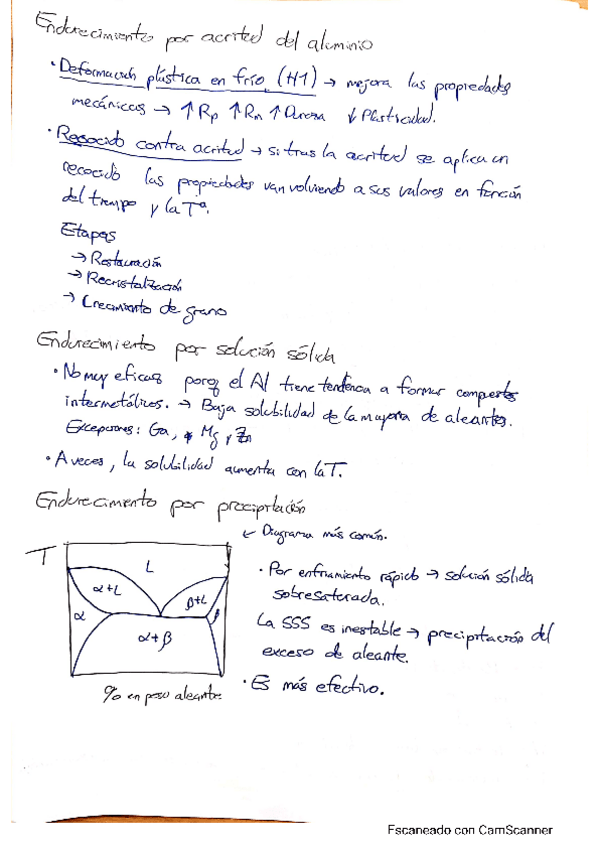 Endurecimiento por acritud del aluminio
· Deformación plástica en frío (H1) → mejora las propiedades
mecánicas → ↑ Rp ↑ Rm ↑ Dureza ↓ Plasticidad.
· Recocido contra acritud → si tras la acritud se aplica un
recocido las propiedades van volviendo a sus valores en función
del tiempo y la Tª.
Etapas
→ Restauración
→ Recristalización
→ Crecimiento de grano
Endurecimiento por solución sólida
· No muy eficaz porq el Al tiene tendencia a formar compuestos
intermetálicos. → Baja solubilidad de la mayoría de aleantes.
Excepciones: Ga, Mg y Zn
· A veces, la solubilidad aumenta con la T.
Endurecimiento por precipitación
↙ Diagrama más común.
T
L
α+L
β+L
α
β
α+β
% en peso aleante
· Por enfriamiento rápido → solución sólida
sobresaturada.
La SSS es inestable → precipitación del
exceso de aleante.
· Es más efectivo.
Escaneado con CamScanner